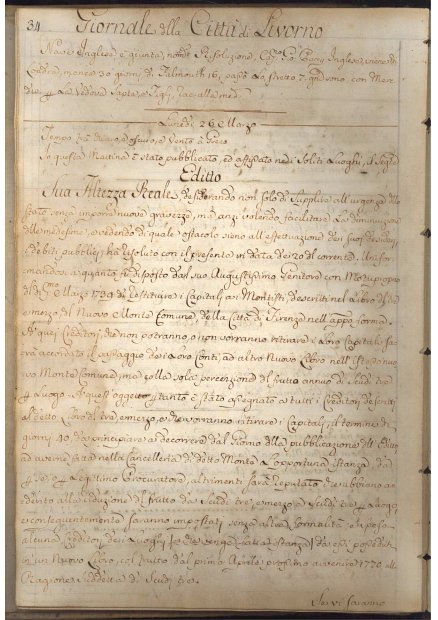 34
Giornale della Città di Livorno
Nave Inglese, è giunta, nom.ta Resoluzione, Cap.o Gio. Inglese, viene di
Londra, manca 30 giorni, di Falmouth 16, passò lo Stretto 7. giorni sono con Mer-
La Vedova
Lunedì 26. Marzo
Tempo chiaro, e oscuro, e vento a Greco
In questa Mattina è stato pubblicato, ed affissato nei Soliti Luoghi, il Seg.te
Editto
Sua Altezza Reale, desiderando non solo di Supplire all'urgenze dello
Stato senza imporre nuove gravezze, m'anzi volendo facilitare la diminuzione
delle medesime, e vedendo di quale ostacolo sieno all'effettuazione dei suoi desiderj
i debiti pubblici, ha risoluto con il presente in data de' 20 del corrente. Unifor-
mandosi a quanto fu disposto dal suo Augustissimo Genitore con Motuproprio
di Marzo 1739 di restituire i Capitali ai Montisti descritti nel Libro di tre
e mezzo del Nuovo Monte Comune della Città di Firenze nell'app.a forma.
A quei Creditori, che non potranno, o non vorranno ritirare i loro Capitali sa-
rà accordato il passaggio dei loro Conti, ad altro Nuovo Libro nell'istesso nuo-
vo Monte Comune, ma colla sola percezione del frutto annuo di Scudi tre
Luogo. A quest'oggetto stante è stato assegnato a tutti i Creditori descritti
al detto Libro di tre, e mezzo, e che vorranno ritirare i Capitali, il termine di
giorni 90. da principiare a decorrere dal giorno della pubblicazione dell'Editto
ad averne fatta nella Cancelleria di detto Monte l'opportuna istanza, da
per se, o Legittimo Procuratore, altrimenti sarà reputato che abbiano a-
derito alla riduzione del frutto da Scudi tre, e mezzo a Scudi tre Luogo,
e conseguentemente saranno impostati senza altra formalità, e risposta
alcuna, i Creditori dei Luoghi da essi posseduti
in un Nuovo Libro, col frutto dal primo Aprile prossimo avvenire 1770 alla
Ragione suddetta di Scudi tre.
Ser vi saranno